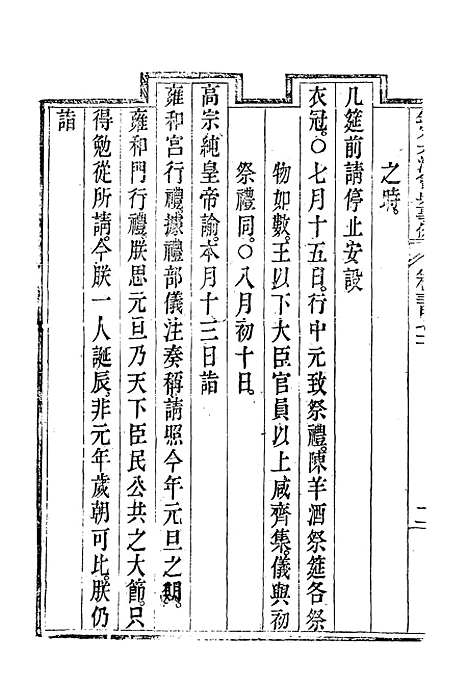 之時。
几筵前請停止安設
衣冠。〇七月十五日。行中元致祭禮。陳羊酒祭筵各祭
物如數。王以下大臣官員以上咸齊集。儀與初
祭禮同。〇八月初十日。
高宗純皇帝諭。本月十三日詣
雍和宮行禮。據禮部儀注奏稱請照今年元旦之期。
雍和門行禮。朕思元旦乃天下臣民公共之大節。只
得勉從所請。今朕一人誕辰。非元年歲朝可比。朕仍
詣